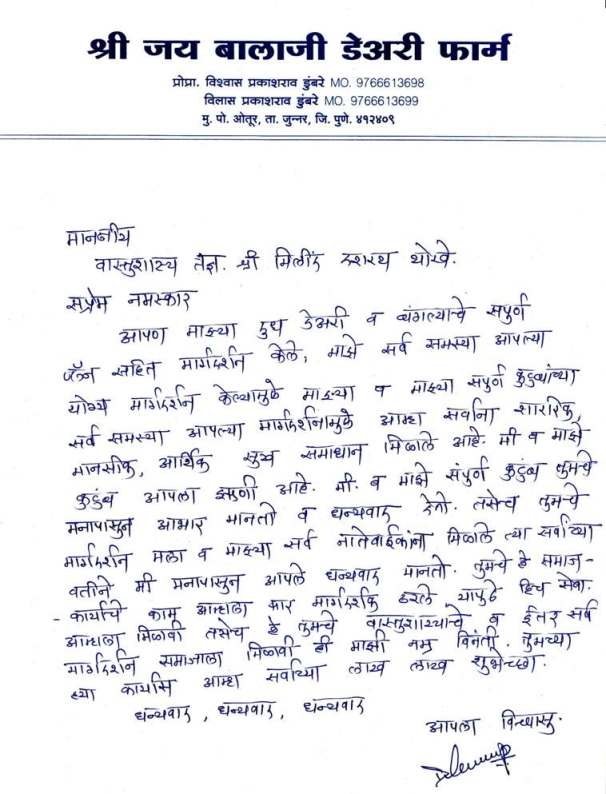 श्री जय बालाजी डेअरी फार्म
प्रोप्रा. विश्वास प्रकाशराव डुंबरे MO. 9766613698
विलास प्रकाशराव डुंबरे MO. 9766613699
मु. पो. ओतूर, ता. जुन्नर, जि. पुणे. ४१२४०९
माननीय
वास्तुशास्त्र तज्ञ. श्री मिलींद दशरथ थोरवे.
सप्रेम नमस्कार
आपण माझ्या दुध डेअरी व बंगल्याचे संपुर्ण
प्लॅन सहित मार्गदर्शन केले, माझे सर्व समस्या आपल्या
योग्य मार्गदर्शन केल्यामुळे माझ्या व माझ्या संपुर्ण कुटुंबांच्या
सर्व समस्या आपल्या मार्गदर्शनामुळे आम्हा सर्वांना शाररिक,
मानसीक, आर्थिक सुख समाधान मिळाले आहे. मी व माझे
कुटुंब आपला ऋणी आहे. मी. व माझे संपुर्ण कुटुंब तुमचे
मनापासुन आभार मानतो व धन्यवाद देतो. तसेच तुमचे
मार्गदर्शन मला व माझ्या सर्व नातेवाईकांना मिळाले त्या सर्वांच्या
वतीने मी मनापासुन आपले धन्यवाद मानतो. तुमचे हे समाज-
- कार्याचे काम आम्हाला फार मार्गदर्शक ठरले, यापुढे हिच सेवा.
आम्हाला मिळावी तसेच हे तुमचे वास्तुशास्त्राचे व ईतर सर्व
मार्गदर्शन समाजाला मिळावी ही माझी नम्र विनंती. तुमच्या
ह्या कार्यास आम्हा सर्वांच्या लाख लाख शुभेच्छा.
धन्यवाद, धन्यवाद, धन्यवाद
आपला विश्वासु.